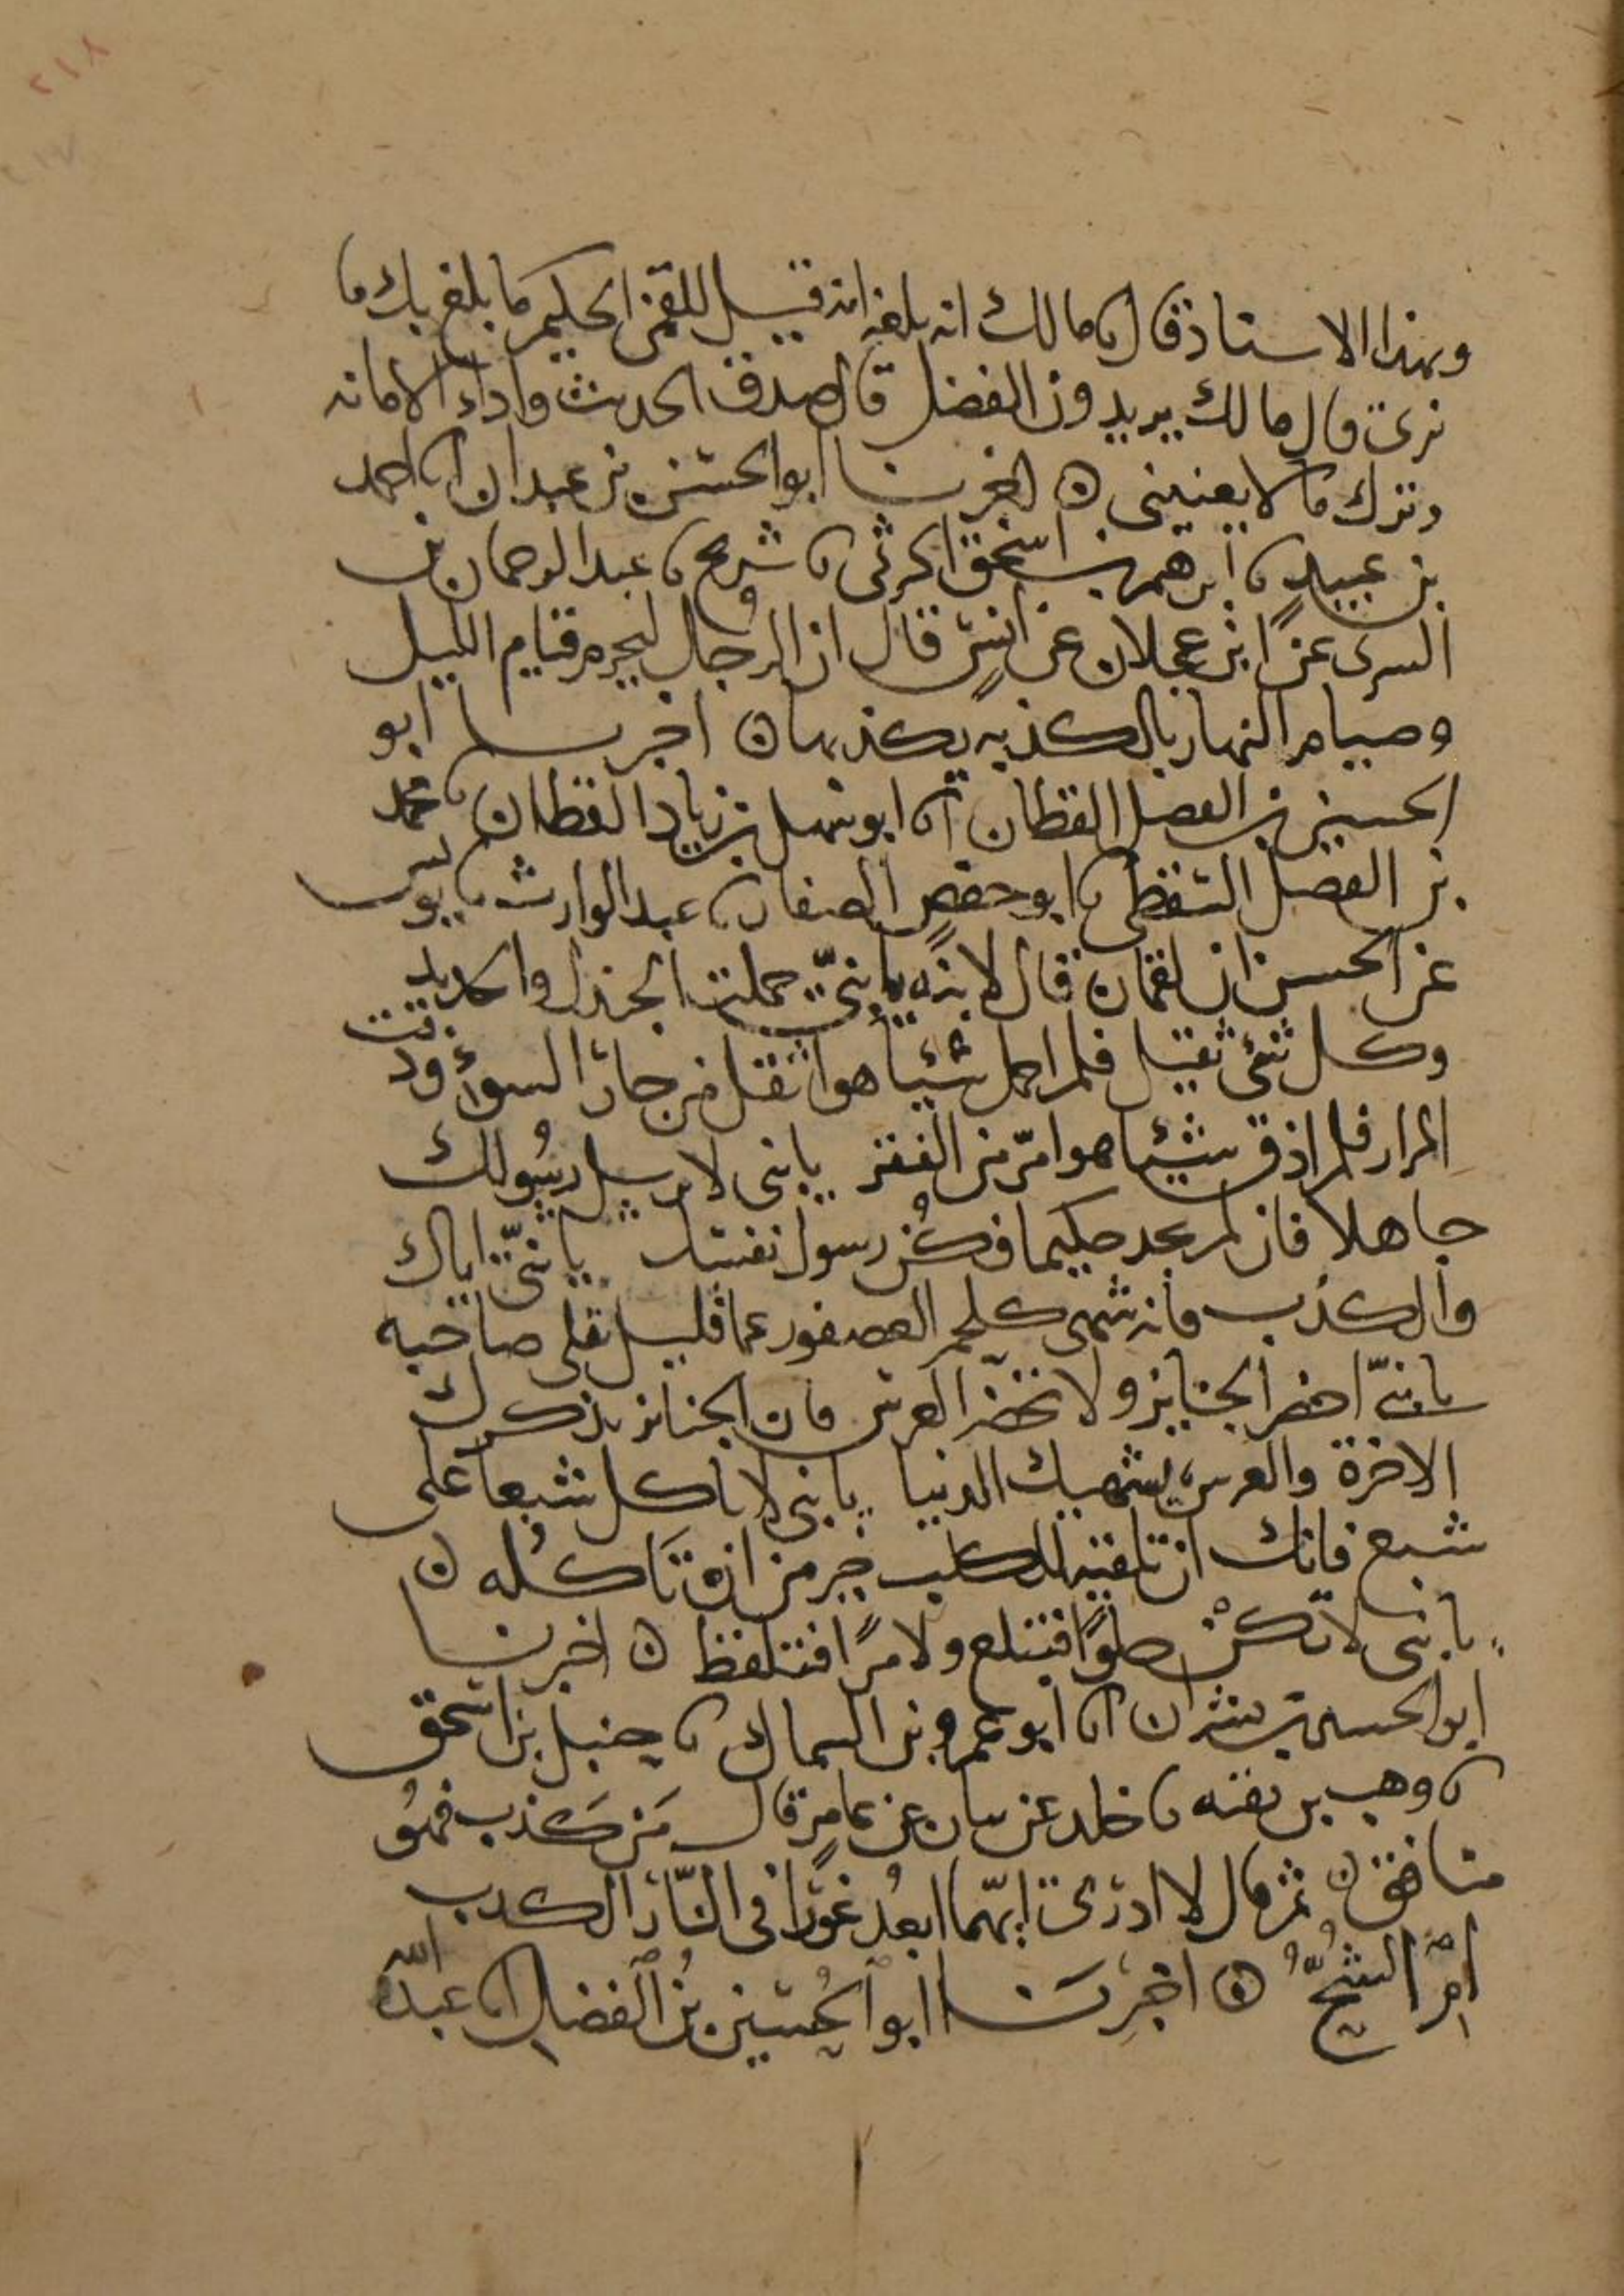 ٢١٨
وبهذا الاسناد قال نا مالك انه بلغه انه قيل للقمن الحكيم ما بلغ بك ما
نرى قال مالك يريدون الفضل قال صدق الحديث واداء الامانه
وترك ما لا يعنينى ه اخبرنا ابو الحسن بن عبدان انا احمد
بن عبيد نا ابرهيم بن اسحق الحربى نا شريح نا عبد الرحمان بن
السرى عن ابن عجلان عن انس قال ان الرجال ليحرم قيام الليل
وصيام النهار بالكذبه يكذبها ه اخبرنا ابو
الحسين بن الفضل القطان انا ابو سهل بن زياد القطان نا محمد
بن الفضل السقطى نا ابو حفص الصفار نا عبد الوارث نا يونس
عن الحسن ان لقمان قال لابنه يا بنىّ حملت الجندل والحديد
وكل شئ ثقيل فلم احمل شيئا هو اثقل من جار السوء وذقت
المرار فلم اذق شيئا هو امرّ من الفقر يا بنى لا ترسل رسولك
جاهلا فان لم تجد حكيما فكن رسول نفسك يا بنىّ اياك
والكذب فانه شهى كلحم العصفور عما قليل يقلى صاحبه
يا بنىّ احضر الجنايز ولا تحضر العرس فان الجنائز تذكرك
الاخرة والعرس يشهيك الدنيا يا بنى لا تاكل شبعا على
شبع فانك ان تلقيه للكلب خير من ان تاكله ه
يا بنى لا تكن حلوًا فتبلع ولا مرًا فتلفظ ه اخبرنا
ابو الحسين بن بشران انا ابو عمرو بن السماك نا حنبل بن اسحق
نا وهب بن بقيه نا خلد عن بيان عن عامر قال من كذب فهو
منافق ه ثم قال لا ادرى ايهما ابعد غورًا فى النار الكذب
ام الشحّ ه اخبرنا ابو الحسين بن الفضل انا عبد الله